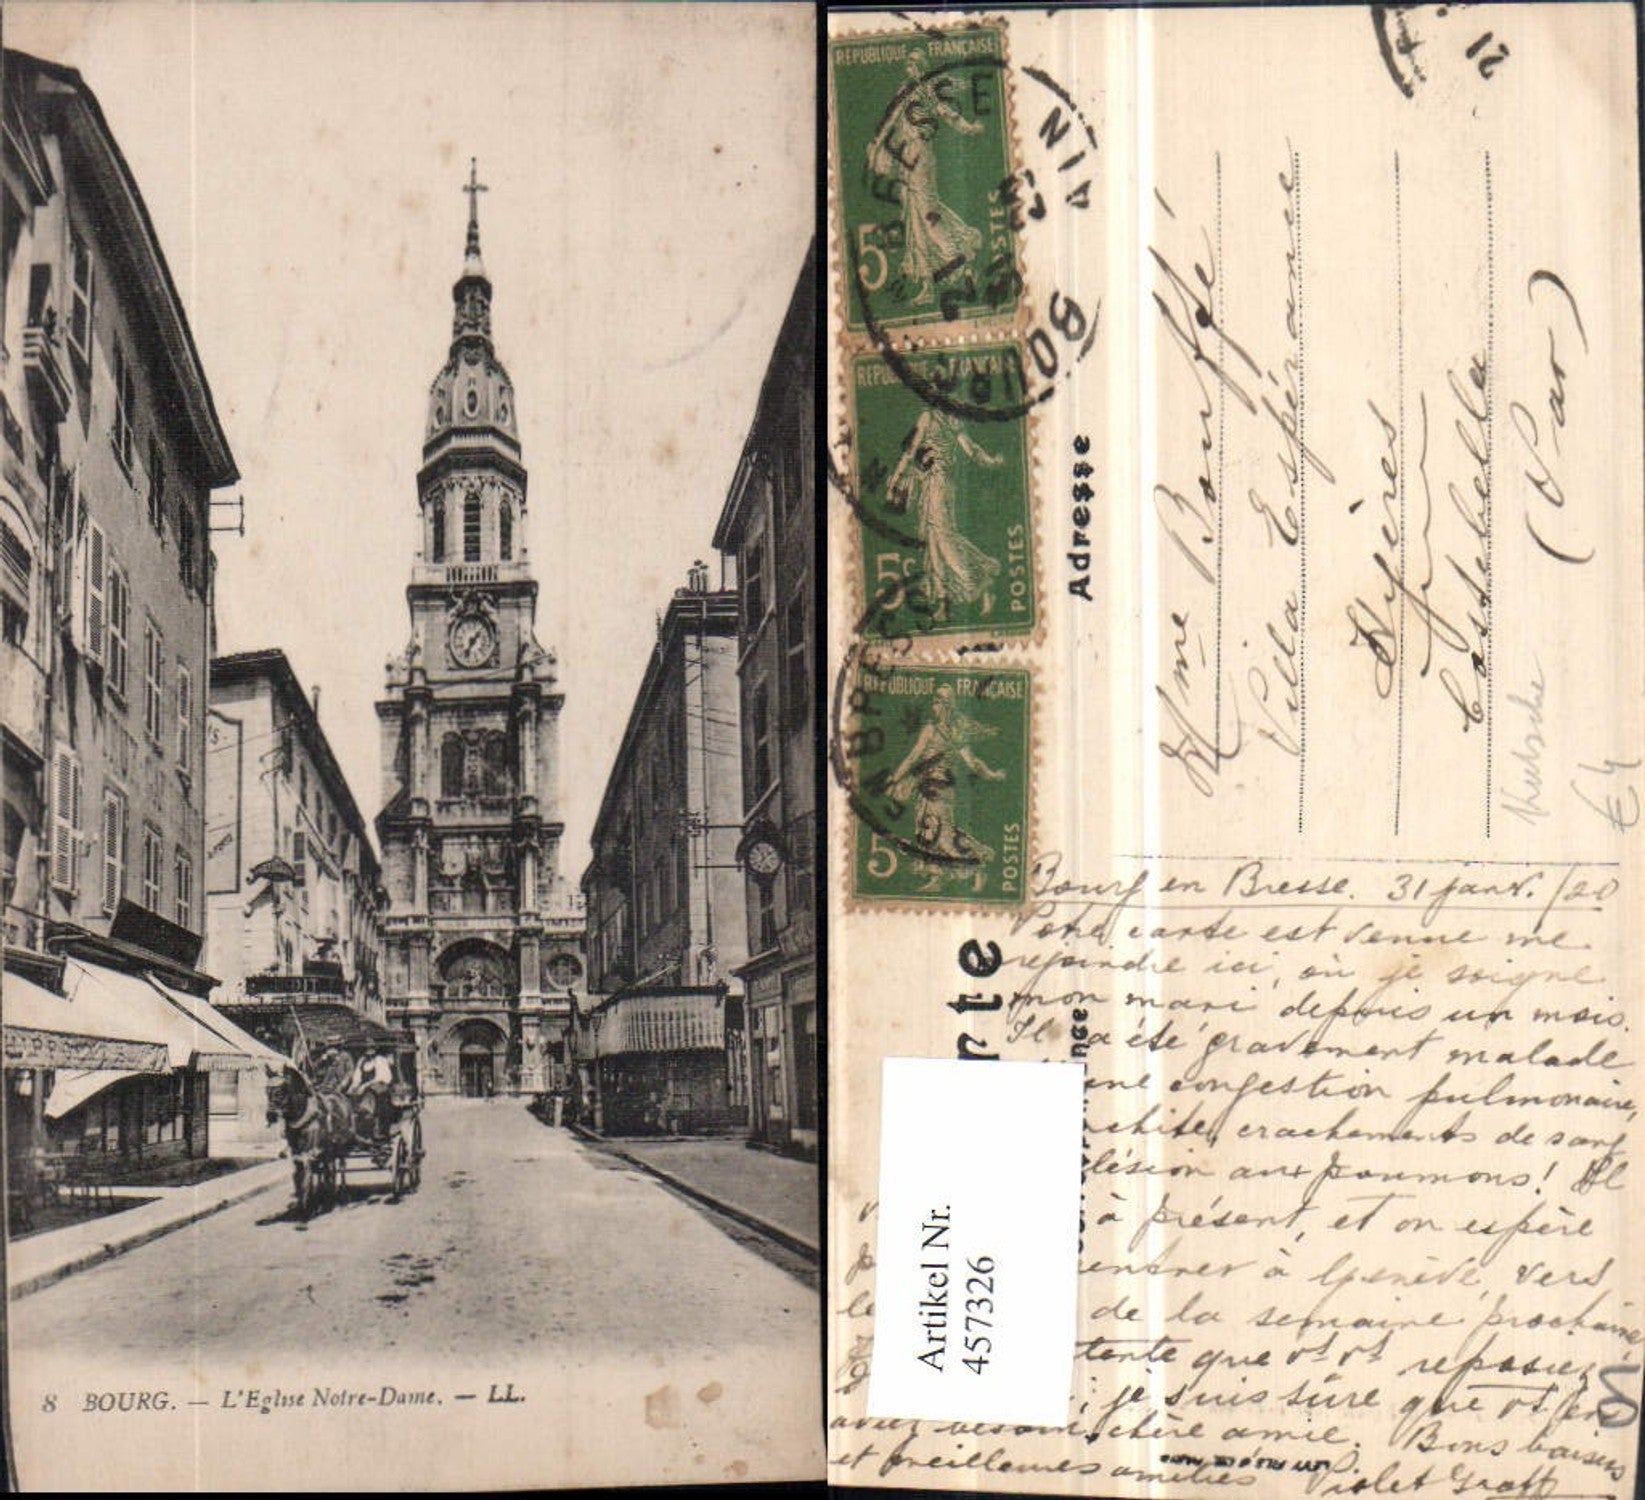 8 BOURG. — L'Eglise Notre-Dame. — LL.
HIPPO
REPUBLIQUE FRANÇAISE
5c
POSTES
REPUBLIQUE FRANÇAISE
5c
POSTES
REPUBLIQUE FRANÇAISE
5c
POSTES
BOURG BRESSE
AIN
BRESSE
21
Adresse
Mme Bouffé
Villa Espérance
Hyères
Costebelle
(Var)
€ 4
Bourg en Bresse. 31 janv. /20
Votre carte est venue me
rejoindre ici, où je soigne
mon mari depuis un mois.
Il a été gravement malade
congestion pulmonaire,
crachements de sang
lésion aux poumons! Il
à présent, et on espère
rentrer à Genève, vers
de la semaine prochaine,
que vs vs reposiez
; je suis sûre que vs en
aviez besoin, chère amie. Bons baisers
et meilleures amitiés Violet Graff
Artikel Nr.
457326